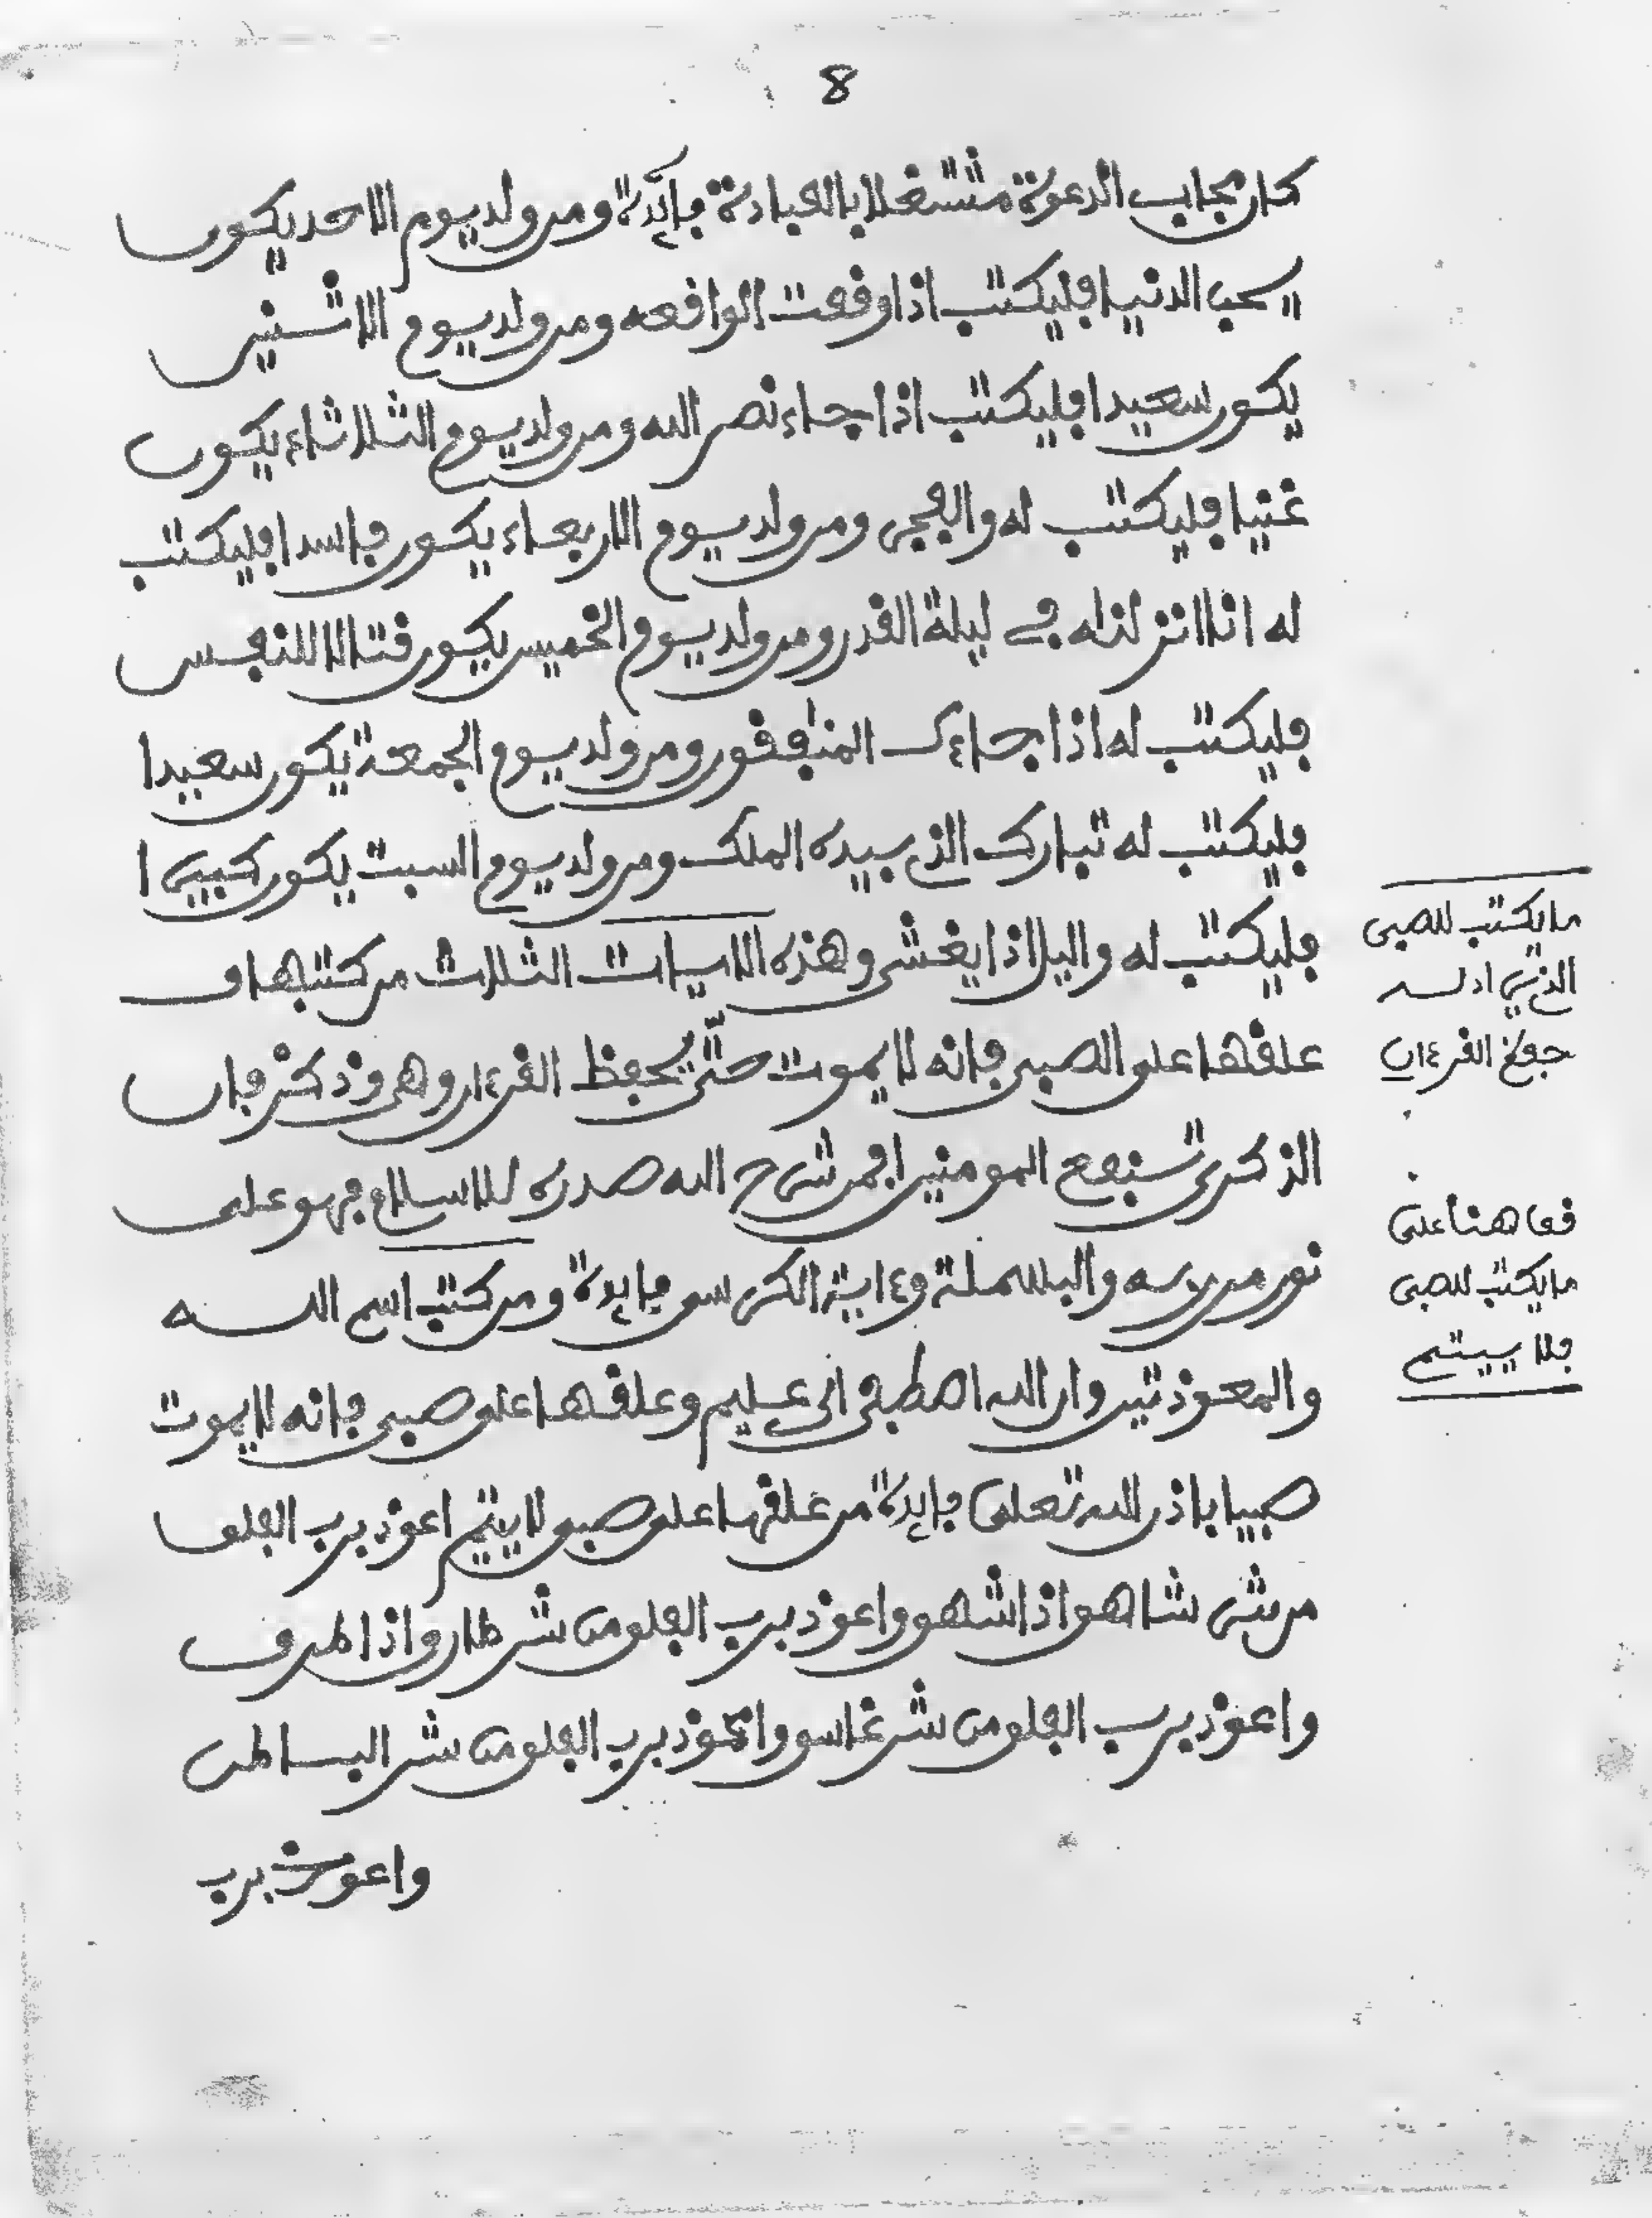 8
كان مجاب الدعوة مشتغلا بالعبادة فإئدة ومن ولد يوم الاحد يكون
يحب الدنيا فليكتب اذا وقعت الواقعه ومن ولد يوم الاثنين
يكون سعيدا فليكتب اذا جاء نصر الله ومن ولد يوم الثلاثاء يكون
غنيا فليكتب له والفجر ومن ولد يوم الاربعاء يكون فاسدا فليكتب
له انا انزلناه في ليلة القدر ومن ولد يوم الخميس يكون قتالا للنفس
فليكتب له اذا جاءك المنافقون ومن ولد يوم الجمعة يكون سعيدا
فليكتب له تبارك الذي بيده الملك ومن ولد يوم السبت يكون كبيرا
فليكتب له واليل اذا يغشى وهذه الايات الثلاث من كتبها او
علقها على الصبي فإنه لا يموت حتى يحفظ القرءان وهي وذكر فإن
الذكرى تنفع المومنين افمن شرح الله صدره للاسلام فهو على
نور من ربه والبسملة وءاية الكرسي فإيدة ومن كتب اسم الله
والمعوذتين وان الله اصطفى الى عليم وعلقها على صبي فإنه لا يموت
صبيا باذن الله تعلى فإيدة من علقها على صبي لا ييتم اعوذ برب الفلق
من شر شاهق اذا شهق واعوذ برب الفلق من شر طارق اذا طرق
واعوذ برب الفلق من شر غاسق واعوذ برب الفلق من شر الساطر
واعوذ برب
ما يكتب للصبي
الذي
حفظ القرءان
قف هنا على
ما يكتب للصبي
فلا ييتم